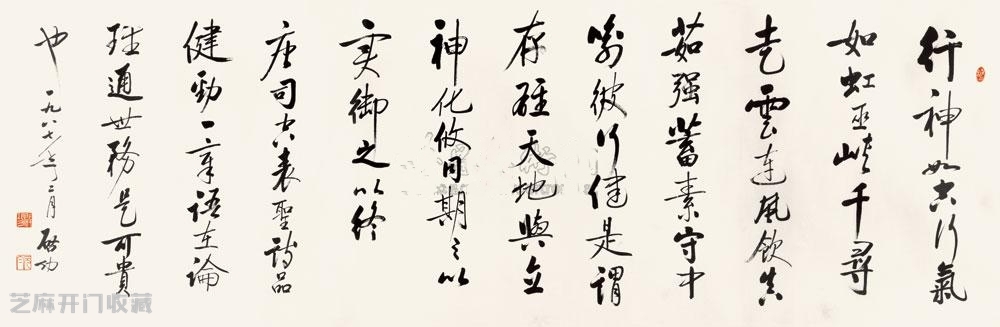 行神如空行氣
如虹巫峽千尋
走雲連風飲真
茹强蓄素守中
喻彼行健是謂
存雄天地與立
神化攸同期之以
实御之以終
唐司空表聖詩品
健勁一章語在論
理通世務是可貴
也 一九八七年二月 啟功
芝麻开门收藏